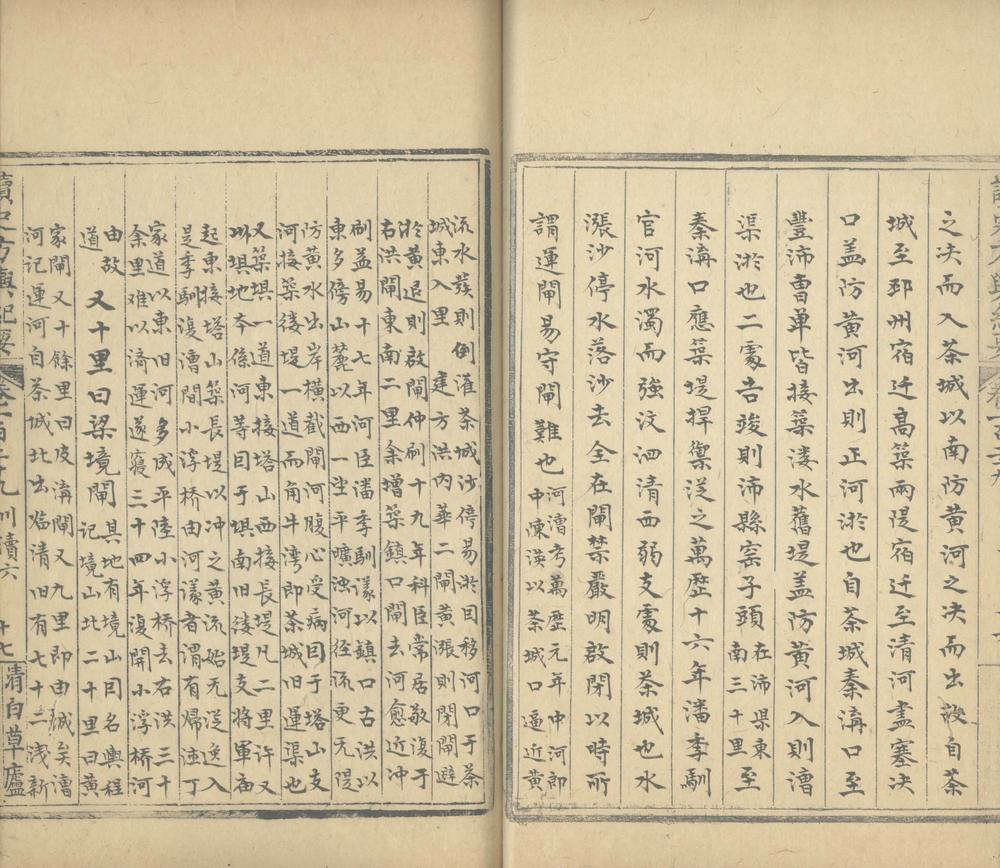 之决而入茶城以南防黄河之决而出故自茶
城至邳州宿迁髙築兩隄宿迁至清河盡塞决
口盖防黄河出則正河淤也自茶城秦溝口至
豐沛曹单皆接築溇水舊堤盖防黄河入則漕
渠淤也二處告竣則沛縣窑子頭在沛県東南三十里至
秦溝口應築堤捍禦從之萬歷十六年潘季馴
官河水濁而強汶泗清西弱支處則茶城也水
漲沙停水落沙去全在閘禁嚴明啟閉以時所
謂運閘易守閘難也河漕考萬歷元年中河郎中陳渶以茶城口逼近黄
流水發則倒灌茶城沙停易淤目移河口于茶
城東入里建方洪内華二閘黄漲則閉閘避
淤黄退則啟閘仲刷十九年科臣常居敬復于
右洪閘東南二里余增築鎮口閘去河愈近冲
刷益易十七年河臣潘季馴議以鎮口古洪以
東多傍山麓以西一坐平曠浊河徑流更无隄
防黄水出岸橫截閘河腹心受病目于塔山支
河接築缕堤一道而角牛湾即茶城旧運渠也
又築垻一道東接塔山西接長堤凡二里许又
以垻地夲係河等目于垻南旧缕堤支將軍庙
起東接塔山築長堤以冲之黄流始无從迭入
是季馴復漕間小浮桥由河議者谓有帰注丁
家道以東旧河多成平陸小浮桥去右洪三十
余里难以济運遂寢三十四年復開小浮桥河
由故道又十里曰梁境閘其地有境山目名輿程記境山北二十里曰黄
家閘又十餘里曰皮溝閘又九里即由城矣漕
河记運河自茶城北出临清旧有七十二浅新
讀史方輿紀要 卷一百二十九 川瀆六 十七 清白草廬